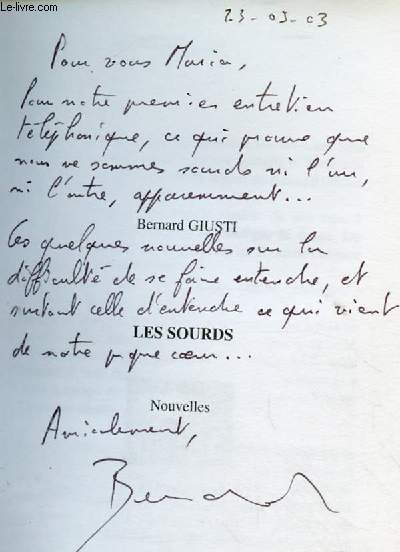 Le-livre.com
23-03-03
Pour vous Maria,
Pour notre premier entretien
téléphonique, ce qui prouve que
nous ne sommes sourds ni l'un,
ni l'autre, apparemment...
Bernard GIUSTI
Ces quelques nouvelles sur la
difficulté de se faire entendre, et
surtout celle d'entendre ce qui vient
LES SOURDS
de notre que cœur...
Nouvelles
Amicalement,
Bernard